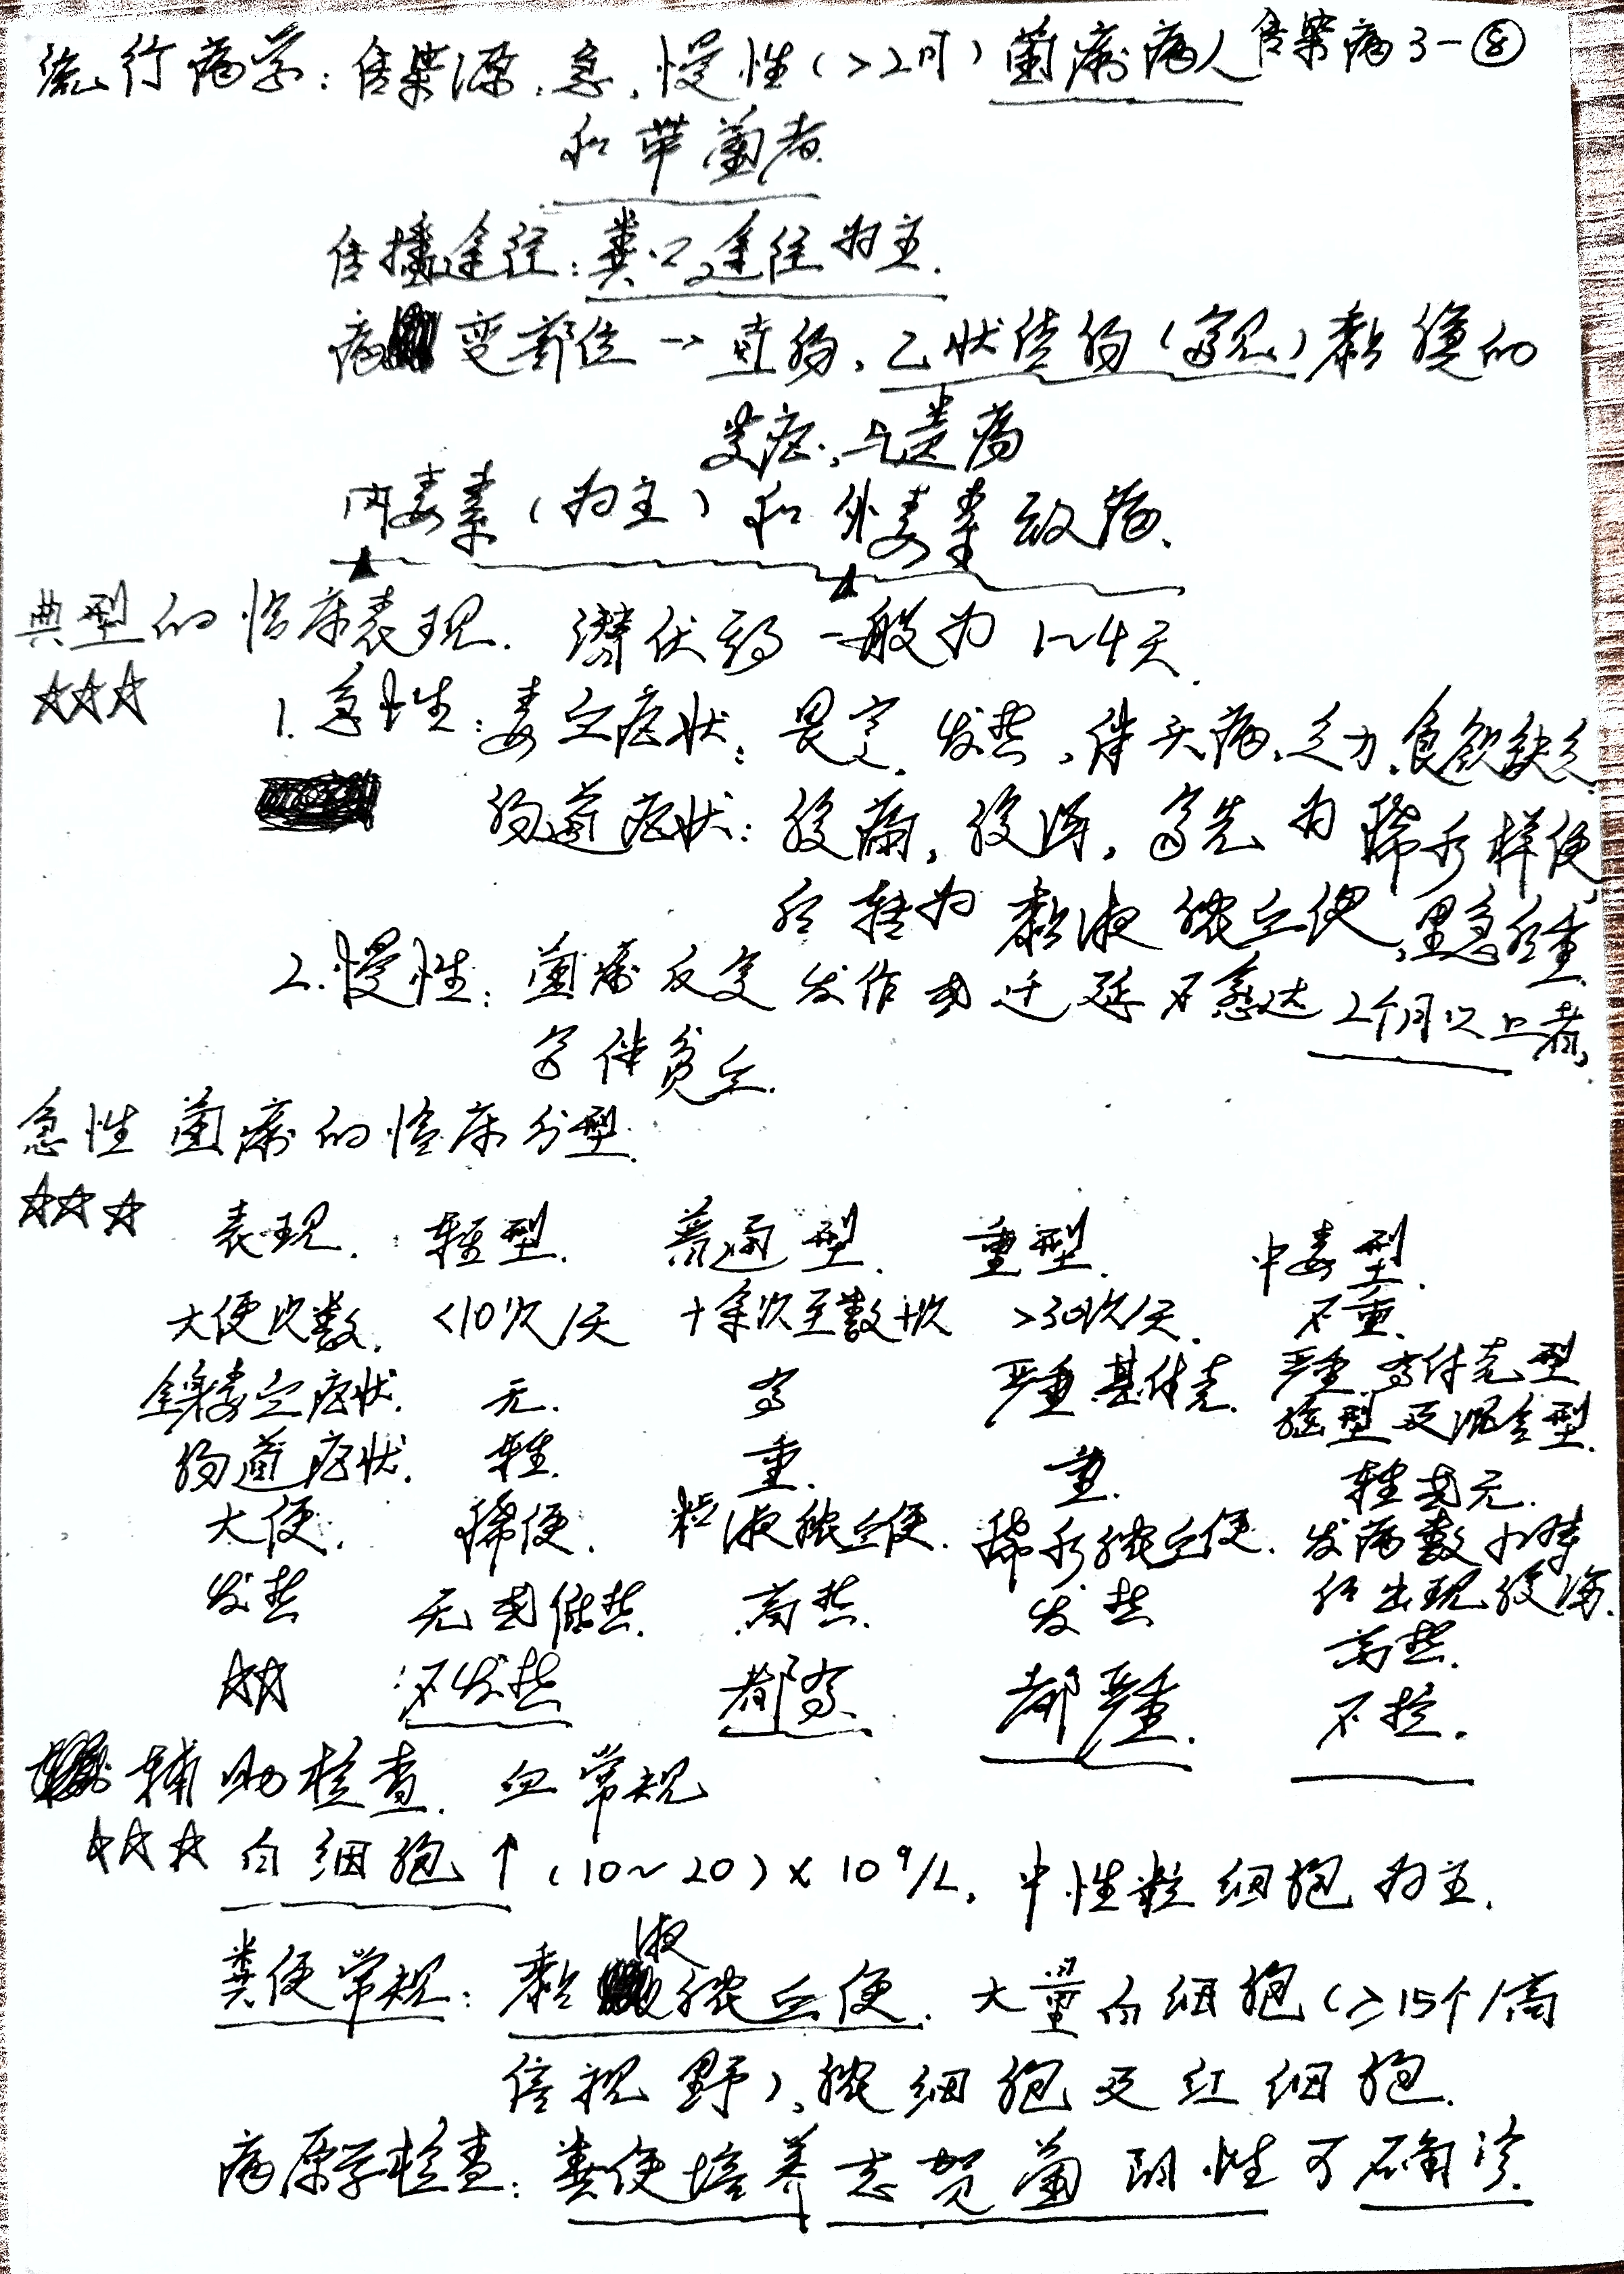 流行病学：传染源：急、慢性（>2月）菌痢病人 传染病3-⑧
和带菌者
传播途径：粪-口途径为主.
病变部位→直肠、乙状结肠（常见）黏膜的
炎症、与溃疡
内毒素（为主）和外毒素致病.
典型的临床表现. 潜伏期一般为1~4天.
☆☆☆
1. 急性：毒血症状：畏寒、发热，伴头痛、乏力、食欲缺乏
肠道症状：腹痛，腹泻，多先为稀水样便,
后转为黏液脓血便，里急后重.
2. 慢性：菌痢反复发作或迁延不愈达2个月以上者,
常伴贫血.
急性菌痢的临床分型.
☆☆☆ 表现. 轻型. 普通型. 重型. 中毒型.
大便次数. <10次/天 十余次至数十次 >30次/天. 不重.
全身毒血症状. 无. 有 严重甚休克. 严重 有休克型
脑型及混合型.
肠道症状. 轻. 重. 重. 轻或无.
大便. 稀便. 粘液脓血便. 稀水脓血便. 发病数小时
后出现腹泻.
发热 无或低热. 高热. 发热 高热.
☆☆ 不发热 都有. 都严重. 不拉.
辅助检查. 血常规
☆☆☆ 白细胞↑（10~20）×10⁹/L，中性粒细胞为主.
粪便常规：黏液脓血便. 大量白细胞（≥15个/高
倍视野），脓细胞及红细胞.
病原学检查：粪便培养志贺菌阴性可确诊.